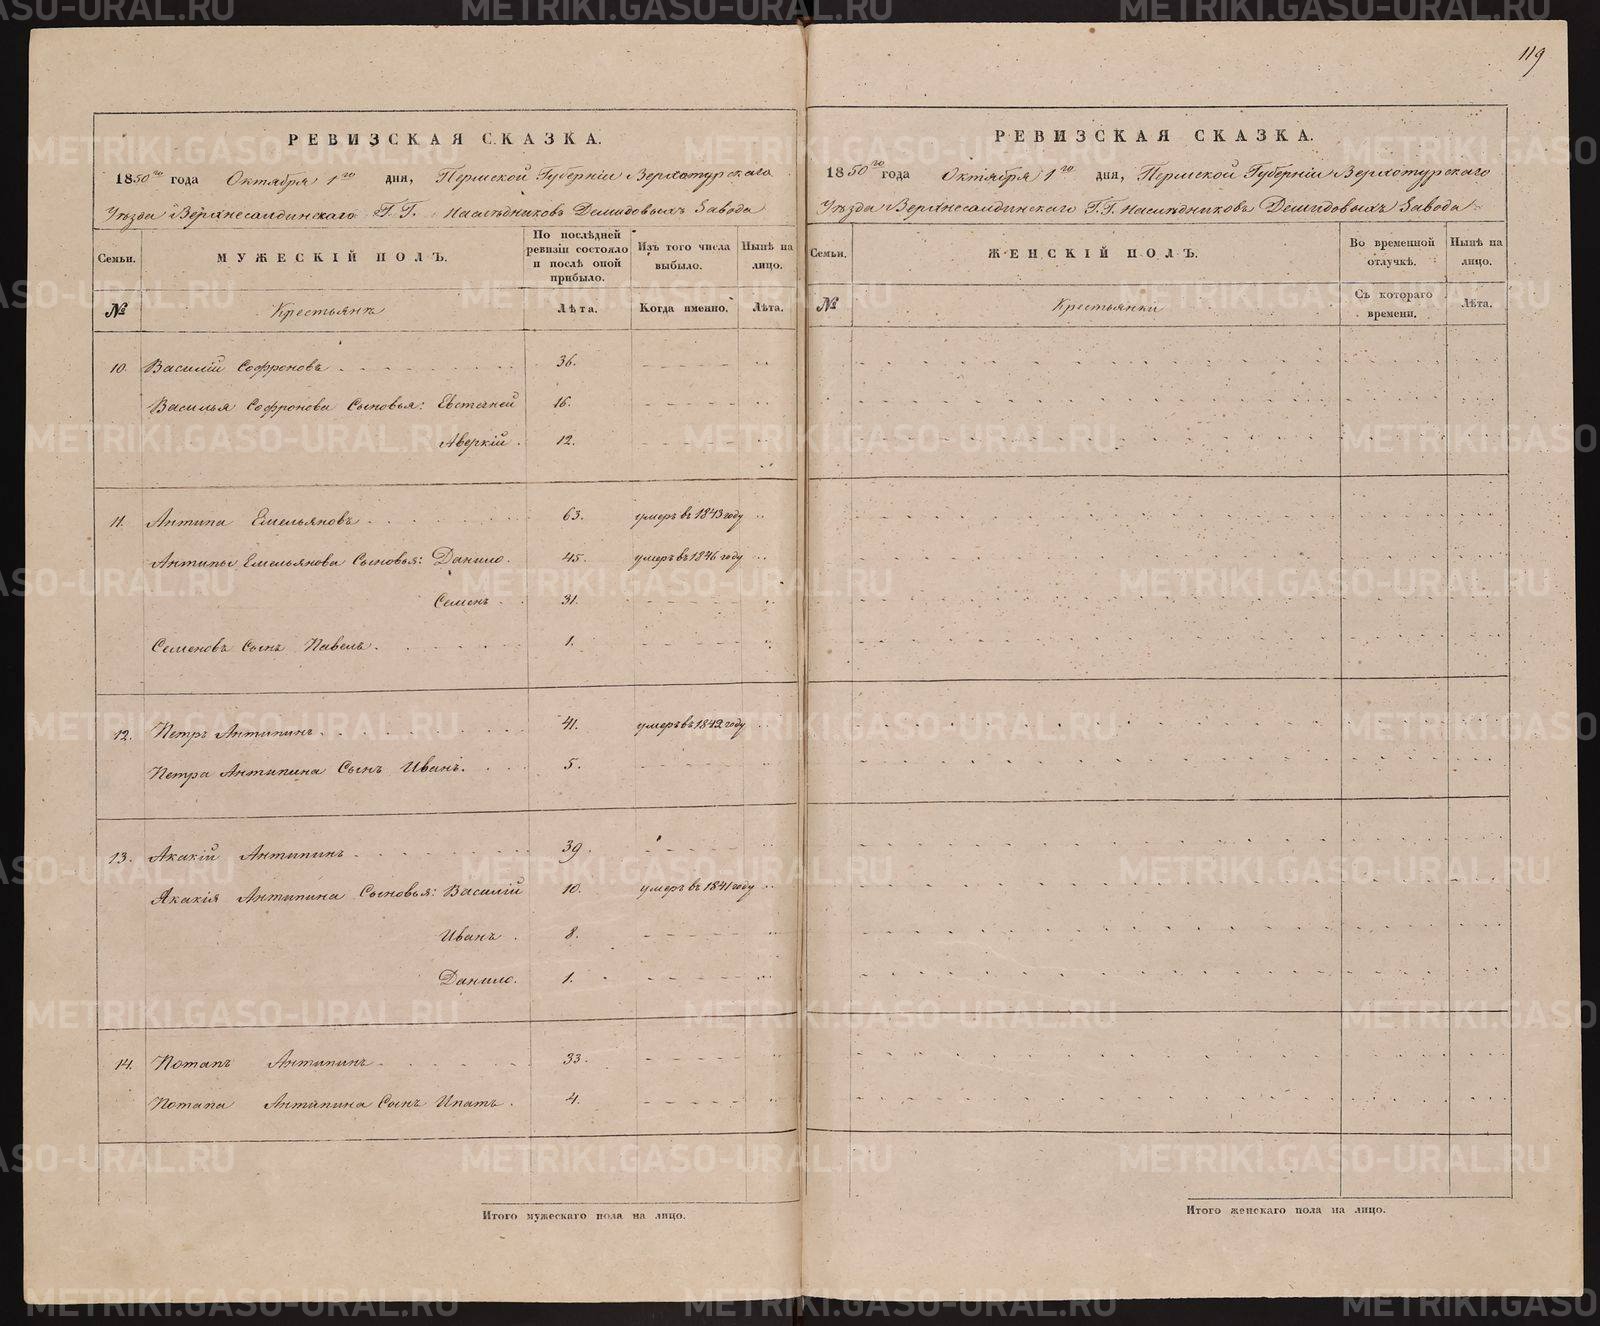 119
РЕВИЗСКАЯ СКАЗКА.
1850го года Октября 1го дня, Пермской Губерніи Верхотурскаго
Уѣзда Верхнесалдинскаго Г.Г. Наслѣдниковъ Демидовыхъ Завода
Семьи. МУЖЕСКІЙ ПОЛЪ. По послѣдней ревизіи состояло и послѣ оной прибыло. Изъ того числа выбыло. Нынѣ на лицо.
№ Крестьянъ Лѣта. Когда именно. Лѣта.
10. Василій Софроновъ 36.
Василья Софронова Сыновья: Евстегней 16.
Аверкій 12.
11. Антипа Емельяновъ 63. умеръ въ 1843 году
Антипы Емельянова Сыновья: Данило. 45. умеръ въ 1846 году
Семенъ 31.
Семеновъ Сынъ Павелъ. 1.
12. Петръ Антипинъ 41. умеръ въ 1842 году
Петра Антипина Сынъ Иванъ. 5.
13. Акакій Антипинъ 39.
Акакія Антипина Сыновья: Василій 10. умеръ въ 1841 году
Иванъ 8.
Данило. 1.
14. Потапъ Антипинъ 33.
Потапа Антипина Сынъ Ипатъ. 4.
Итого мужескаго пола на лицо.
РЕВИЗСКАЯ СКАЗКА.
1850го года Октября 1го дня, Пермской Губерніи Верхотурскаго
Уѣзда Верхнесалдинскаго Г.Г. Наслѣдниковъ Демидовыхъ Завода
Семьи. ЖЕНСКІЙ ПОЛЪ. Во временной отлучкѣ. Нынѣ на лицо.
№ Крестьянки Съ котораго времени. Лѣта.
Итого женскаго пола на лицо.
METRIKI.GASO-URAL.RU